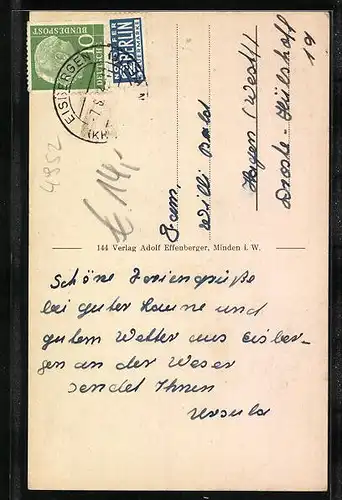 DEUTSCHE
BUNDESPOST
10
NOTOPFER
2 BERLIN
STEUERMARKE
EISBERGEN
-7.8.
(KR
4952
14,-
Fam.
Willi
Hagen (Westf)
Droste-Hülshoff
19
144 Verlag Adolf Effenberger, Minden i. W.
Schöne Feriengrüße
bei guter Laune und
gutem Wetter aus Eisber-
gen an der Weser
sendet Ihnen
Ursula